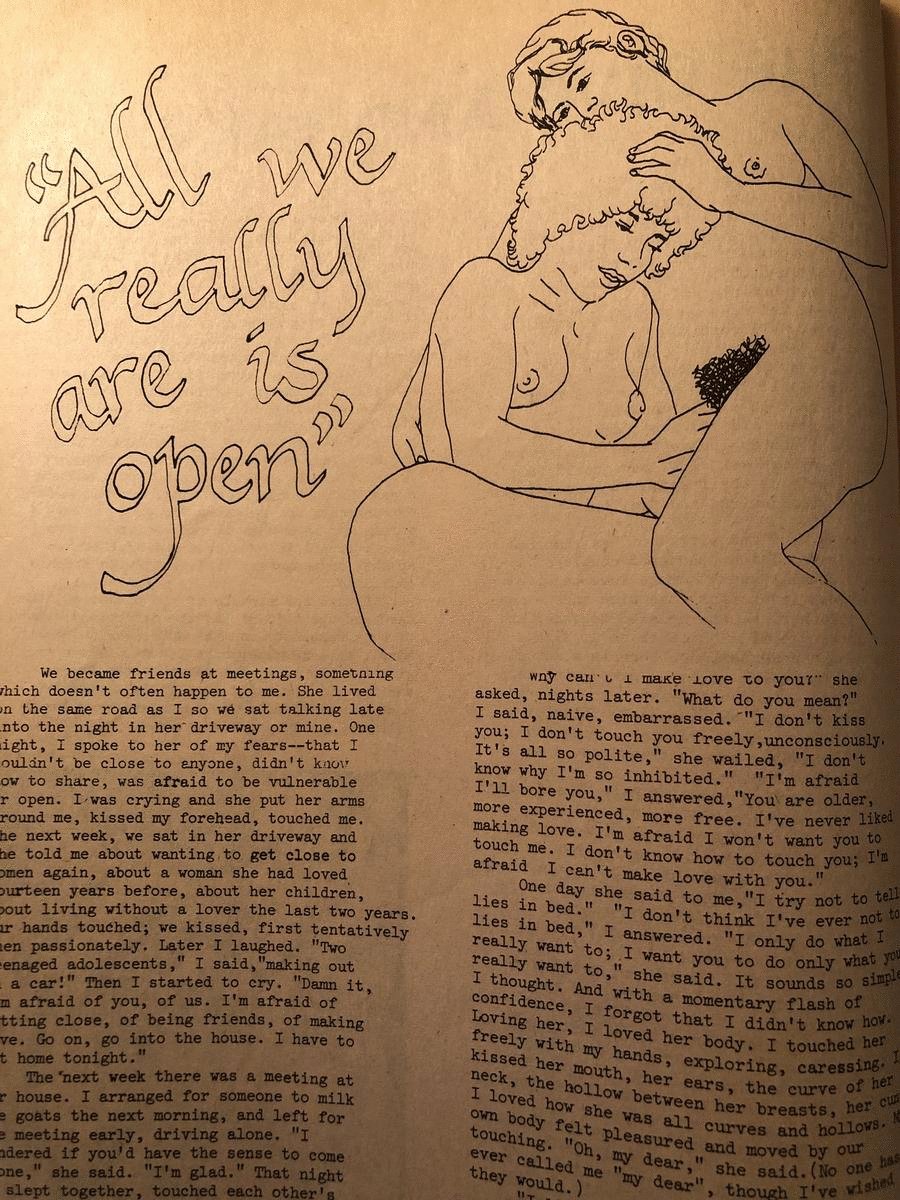 "All we
really
are is
open"
We became friends at meetings, something
which doesn't often happen to me. She lived
on the same road as I so we sat talking late
into the night in her driveway or mine. One
night, I spoke to her of my fears--that I
couldn't be close to anyone, didn't know
how to share, was afraid to be vulnerable
or open. I was crying and she put her arms
around me, kissed my forehead, touched me.
The next week, we sat in her driveway and
she told me about wanting to get close to
women again, about a woman she had loved
fourteen years before, about her children,
about living without a lover the last two years.
Our hands touched; we kissed, first tentatively
then passionately. Later I laughed. "Two
teenaged adolescents," I said,"making out
in a car!" Then I started to cry. "Damn it,
I'm afraid of you, of us. I'm afraid of
getting close, of being friends, of making
love. Go on, go into the house. I have to
at home tonight."
The next week there was a meeting at
her house. I arranged for someone to milk
the goats the next morning, and left for
the meeting early, driving alone. "I
wondered if you'd have the sense to come
alone," she said. "I'm glad." That night
we slept together, touched each other's
why can't I make love to you?" she
asked, nights later. "What do you mean?"
I said, naive, embarrassed. "I don't kiss
you; I don't touch you freely,unconsciously.
It's all so polite," she wailed, "I don't
know why I'm so inhibited." "I'm afraid
I'll bore you," I answered,"You are older,
more experienced, more free. I've never liked
making love. I'm afraid I won't want you to
touch me. I don't know how to touch you; I'm
afraid I can't make love with you."
One day she said to me,"I try not to tell
lies in bed." "I don't think I've ever not to
lies in bed," I answered. "I only do what I
really want to; I want you to do only what you
really want to," she said. It sounds so simple
I thought. And with a momentary flash of
confidence, I forgot that I didn't know how.
Loving her, I loved her body. I touched her
freely with my hands, exploring, caressing. I
kissed her mouth, her ears, the curve of her
neck, the hollow between her breasts, her
I loved how she was all curves and hollows.
own body felt pleasured and moved by our
touching. "Oh, my dear," she said.(No one has
ever called me "my dear", though I've wished
they would.)